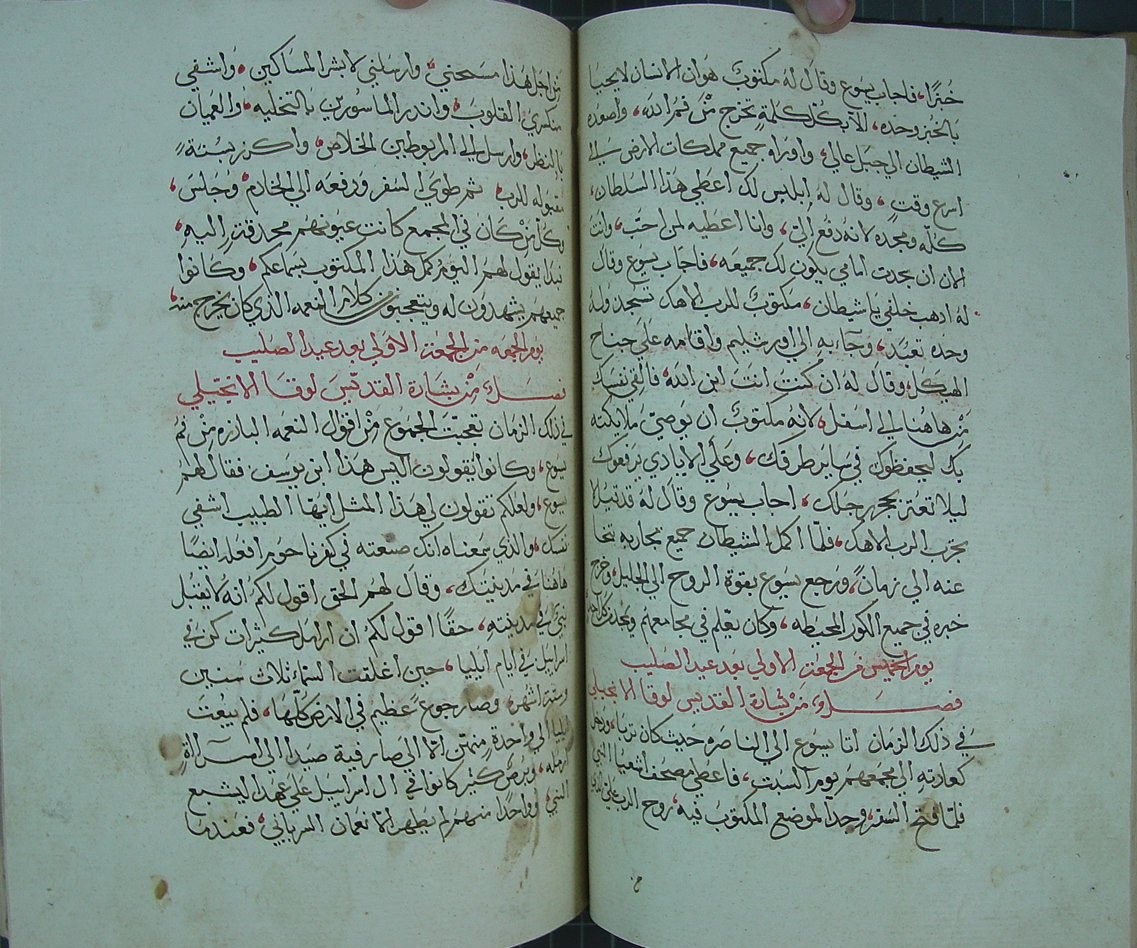 خبزًا، فاجاب يسوع وقال له مكتوبٌ هو ان الانسان لا يحيا
بالخبز وحده، الا بكل كلمةٍ تخرج من فم الله، واصعده
الشيطان الي جبل عالي، واوراه جميع مملكات الارض في
اسرع وقتٍ، وقال له إبليس لك اعطي هذا السلطان،
كلّه ومجده لانه دفع اليّ، وانا اعطيه لمن احبّ، وانت
الان ان سجدت امامي يكون لك جميعه، فاجاب يسوع وقال
له اذهب خلفي يا شيطان، مكتوبٌ للرب الاهك تسجد وله
وحده تعبد، وجآء به الي اورشليم واقامه علي جناح
الهيكل وقال له ان كنت انت ابن الله، فالقي نفسك
من هاهنا الي اسفل، لانه مكتوبٌ ان يوصيَ ملائكته
بك ليحفظوك في ساير طرقك، وعلي الايادي يرفعوك
ليلا تعثر بحجرٍ رجلك، اجاب يسوع وقال له قد قيل لا
تجرّب الرب الاهك، فلمّا اكمل الشيطان جميع تجاربه تنحا
عنه الي زمان، ورجع يسوع بقوة الروح الي الجليل وخرج
خبره في جميع الكور المحيطه، وكان يعلّم في مجامعهم ويمجده كل احد
يوم الخميس من الجمعة الاولي بعد عيد الصليب
فصلٌ من بشارة القديس لوقا الانجيلي
في ذلك الزمان اتا يسوع الي الناصره حيث كان تربا، ودخل
كعادته الي مجمعهم يوم السبت، فاعطي مصحف اشعيا النبي
فلمّا فتح السفر وجد الموضع المكتوب فيه، روح الرب عليّ الذي
من اجل هذا مسحني، وارسلني لابشر المساكين، واشفي
منكسري القلوب، وانذر الماسورين بالتخليه، والعميان
بالنظر، وارسل الي المربوطين الخلاص، واكرز بسنةٍ
مقبوله للرب، ثم طوي السفر ودفعه الي الخادم، وجلس،
وكل من كان في المجمع كانت عيونهم محدقة اليه،
فبدا يقول لهم اليوم كمل هذا المكتوب بسماعكم، وكانوا
جميعهم يشهدون له ويتعجبون من كلام النعمه الذي كان يخرج منه،
يوم الجمعه من الجمعة الاولي بعد عيد الصليب
فصلٌ من بشارة القديس لوقا الانجيلي
في ذلك الزمان تعجبت الجموع من اقول النعمه البارزه من فم
يسوع، وكانوا يقولون اليس هذا ابن يوسف فقال لهم
يسوع، ولعلكم تقولون لي هذا المثل ايها الطبيب اشفي
نفسك، والذي سمعناه انك صنعته في كفرناحوم افعله ايضًا
هاهنا في مدينتك، وقال لهم الحق اقول لكم انه لا يقبل
نبيّ في مدينته، حقًا اقول لكم ان ارامل كثيرات كن في
اسرايل في ايام ايليا، حين اغلقت السماء ثلاث سنين
وستة اشهر، وصار جوع عظيم في الارض كلّها، فلم يبعث
ايليا الي واحدة منهن الا الي صارفية صيدا الي امراةٍ
ارمله، وبرص كثير كانوا في ال اسرايل علي عهد اليشع
النبي، وواحدا منهم لم يطهر الا نعمان السرياني، فعندما